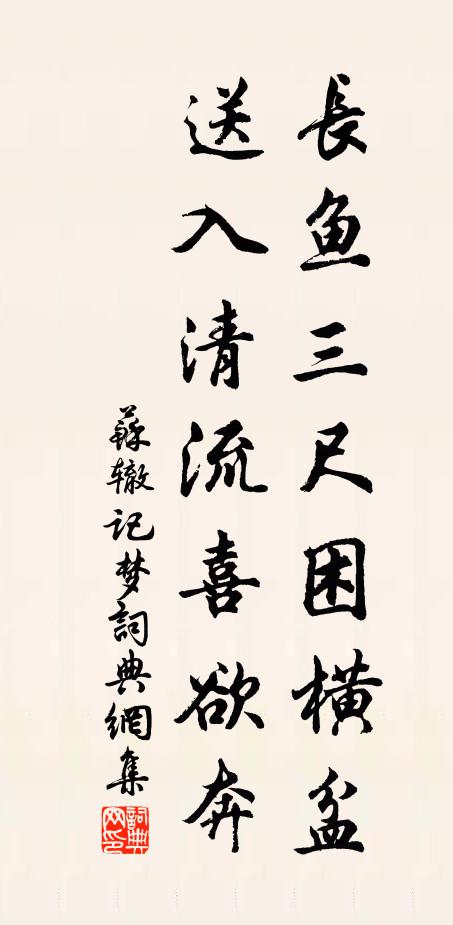 長鱼三尺困橫盆
送入清流喜欲奔
蘇辙记梦詞典網集
詞典网印